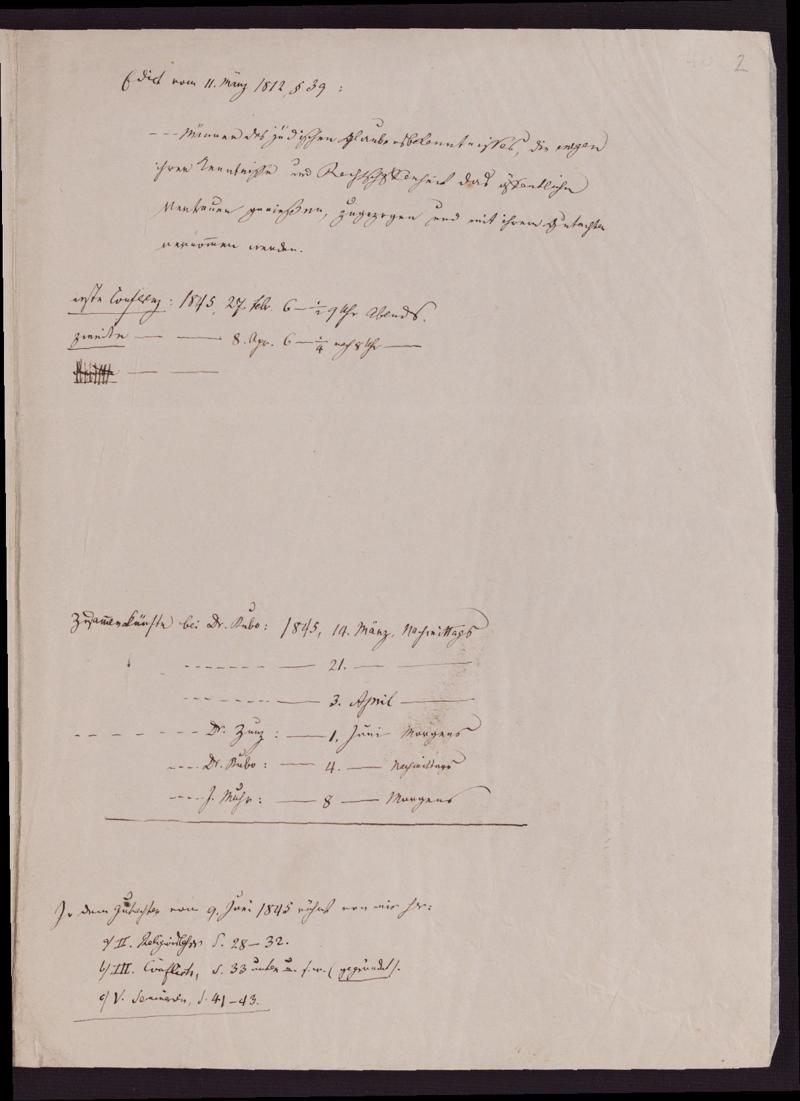 2
Edict vom 11. März 1812, § 39:
--- Männer des jüdischen Glaubensbekenntnisses, die wegen
ihrer Kenntnisse und Rechtschaffenheit das öffentliche
Vertrauen genießen, zugezogen und mit ihrem Gutachten
vernommen werden.
erste Conferenz: 1845, 27. Febr. 6—½9 Uhr Abends.
zweite — — 8. Apr. 6—¼ nach 8 Uhr —
— —
Zusammenkünfte bei Dr. Rubo: 1845, 14. März, Nachmittags
------- — 21. — —
------- — 3. April —
------- Dr. Zunz: — 1. Juni Morgens
---- Dr. Rubo: — 4. — Nachmittags
---- J. Muhr: — 8 — Morgens
In dem Gutachten vom 9. Juni 1845 rührt von mir her:
a) II. Religionslehrer S. 28—32.
b) III. S. 33 unten u. s. w. (gegründet).
c) V. Seminarien, S. 41—43.